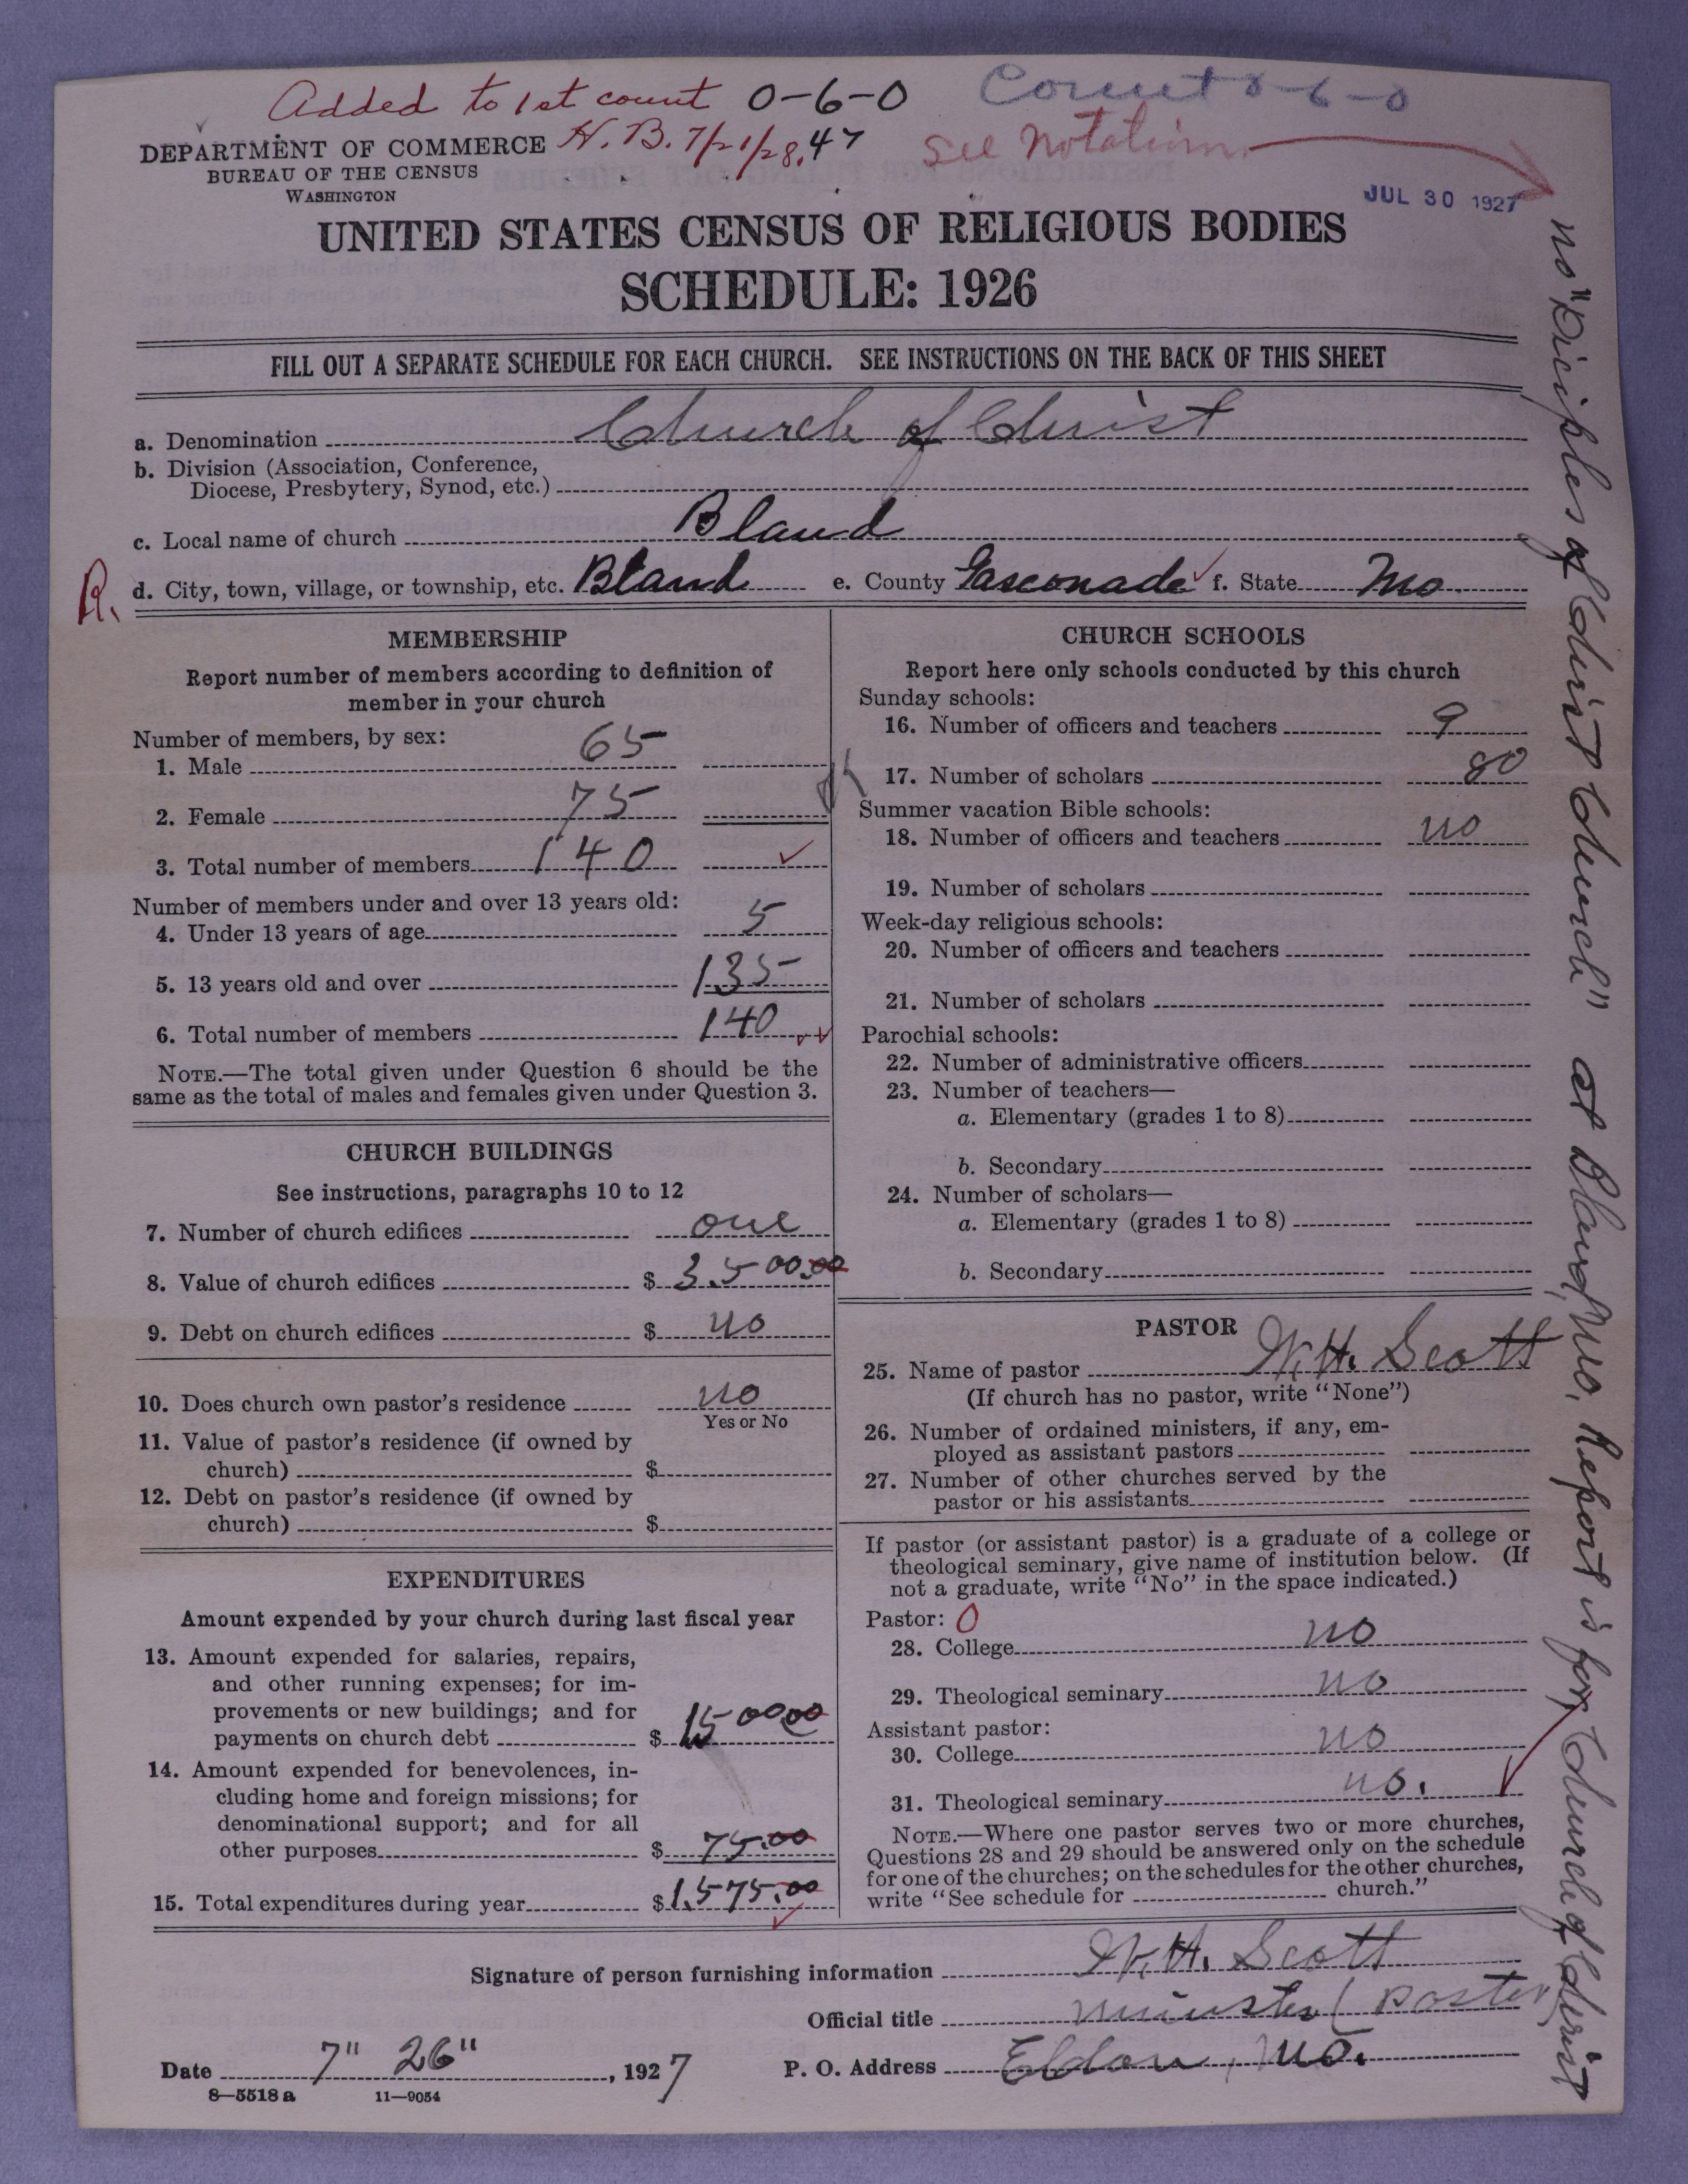 Added to 1st count 0-6-0 Count 0-6-0
DEPARTMENT OF COMMERCE H. B. 7/21/28. 47 See Notation
BUREAU OF THE CENSUS
WASHINGTON
JUL 30 1927
UNITED STATES CENSUS OF RELIGIOUS BODIES
SCHEDULE: 1926
FILL OUT A SEPARATE SCHEDULE FOR EACH CHURCH. SEE INSTRUCTIONS ON THE BACK OF THIS SHEET
a. Denomination Church of Christ
b. Division (Association, Conference,
Diocese, Presbytery, Synod, etc.)
c. Local name of church Bland
R. d. City, town, village, or township, etc. Bland e. County Gasconade ✓ f. State Mo
MEMBERSHIP
Report number of members according to definition of
member in your church
Number of members, by sex:
1. Male 65
2. Female 75
3. Total number of members 140 ✓
Number of members under and over 13 years old:
4. Under 13 years of age 5
5. 13 years old and over 135
6. Total number of members 140
NOTE.—The total given under Question 6 should be the
same as the total of males and females given under Question 3.
CHURCH BUILDINGS
See instructions, paragraphs 10 to 12
7. Number of church edifices one
8. Value of church edifices $ 3.500.00
9. Debt on church edifices $ no
10. Does church own pastor's residence no
Yes or No
11. Value of pastor's residence (if owned by
church) $
12. Debt on pastor's residence (if owned by
church) $
EXPENDITURES
Amount expended by your church during last fiscal year
13. Amount expended for salaries, repairs,
and other running expenses; for im-
provements or new buildings; and for
payments on church debt $ 1500.00
14. Amount expended for benevolences, in-
cluding home and foreign missions; for
denominational support; and for all
other purposes $ 75.00
15. Total expenditures during year $ 1.575.00
CHURCH SCHOOLS
Report here only schools conducted by this church
Sunday schools:
16. Number of officers and teachers 9
17. Number of scholars 80
Summer vacation Bible schools:
18. Number of officers and teachers no
19. Number of scholars
Week-day religious schools:
20. Number of officers and teachers
21. Number of scholars
Parochial schools:
22. Number of administrative officers
23. Number of teachers—
a. Elementary (grades 1 to 8)
b. Secondary
24. Number of scholars—
a. Elementary (grades 1 to 8)
b. Secondary
PASTOR
25. Name of pastor W. H. Scott
(If church has no pastor, write "None")
26. Number of ordained ministers, if any, em-
ployed as assistant pastors
27. Number of other churches served by the
pastor or his assistants
If pastor (or assistant pastor) is a graduate of a college or
theological seminary, give name of institution below. (If
not a graduate, write "No" in the space indicated.)
Pastor: 0
28. College no
29. Theological seminary no
Assistant pastor:
30. College no
31. Theological seminary no.
NOTE.—Where one pastor serves two or more churches,
Questions 28 and 29 should be answered only on the schedule
for one of the churches; on the schedules for the other churches,
write "See schedule for church."
Signature of person furnishing information W. H. Scott
Official title Minister (Paster)
Date 7" 26", 1927 P. O. Address Eldon, Mo.
8—5518 a 11—9054
no "Diciples of Christ Church" at Bland, Mo. Report is for Church of Christ